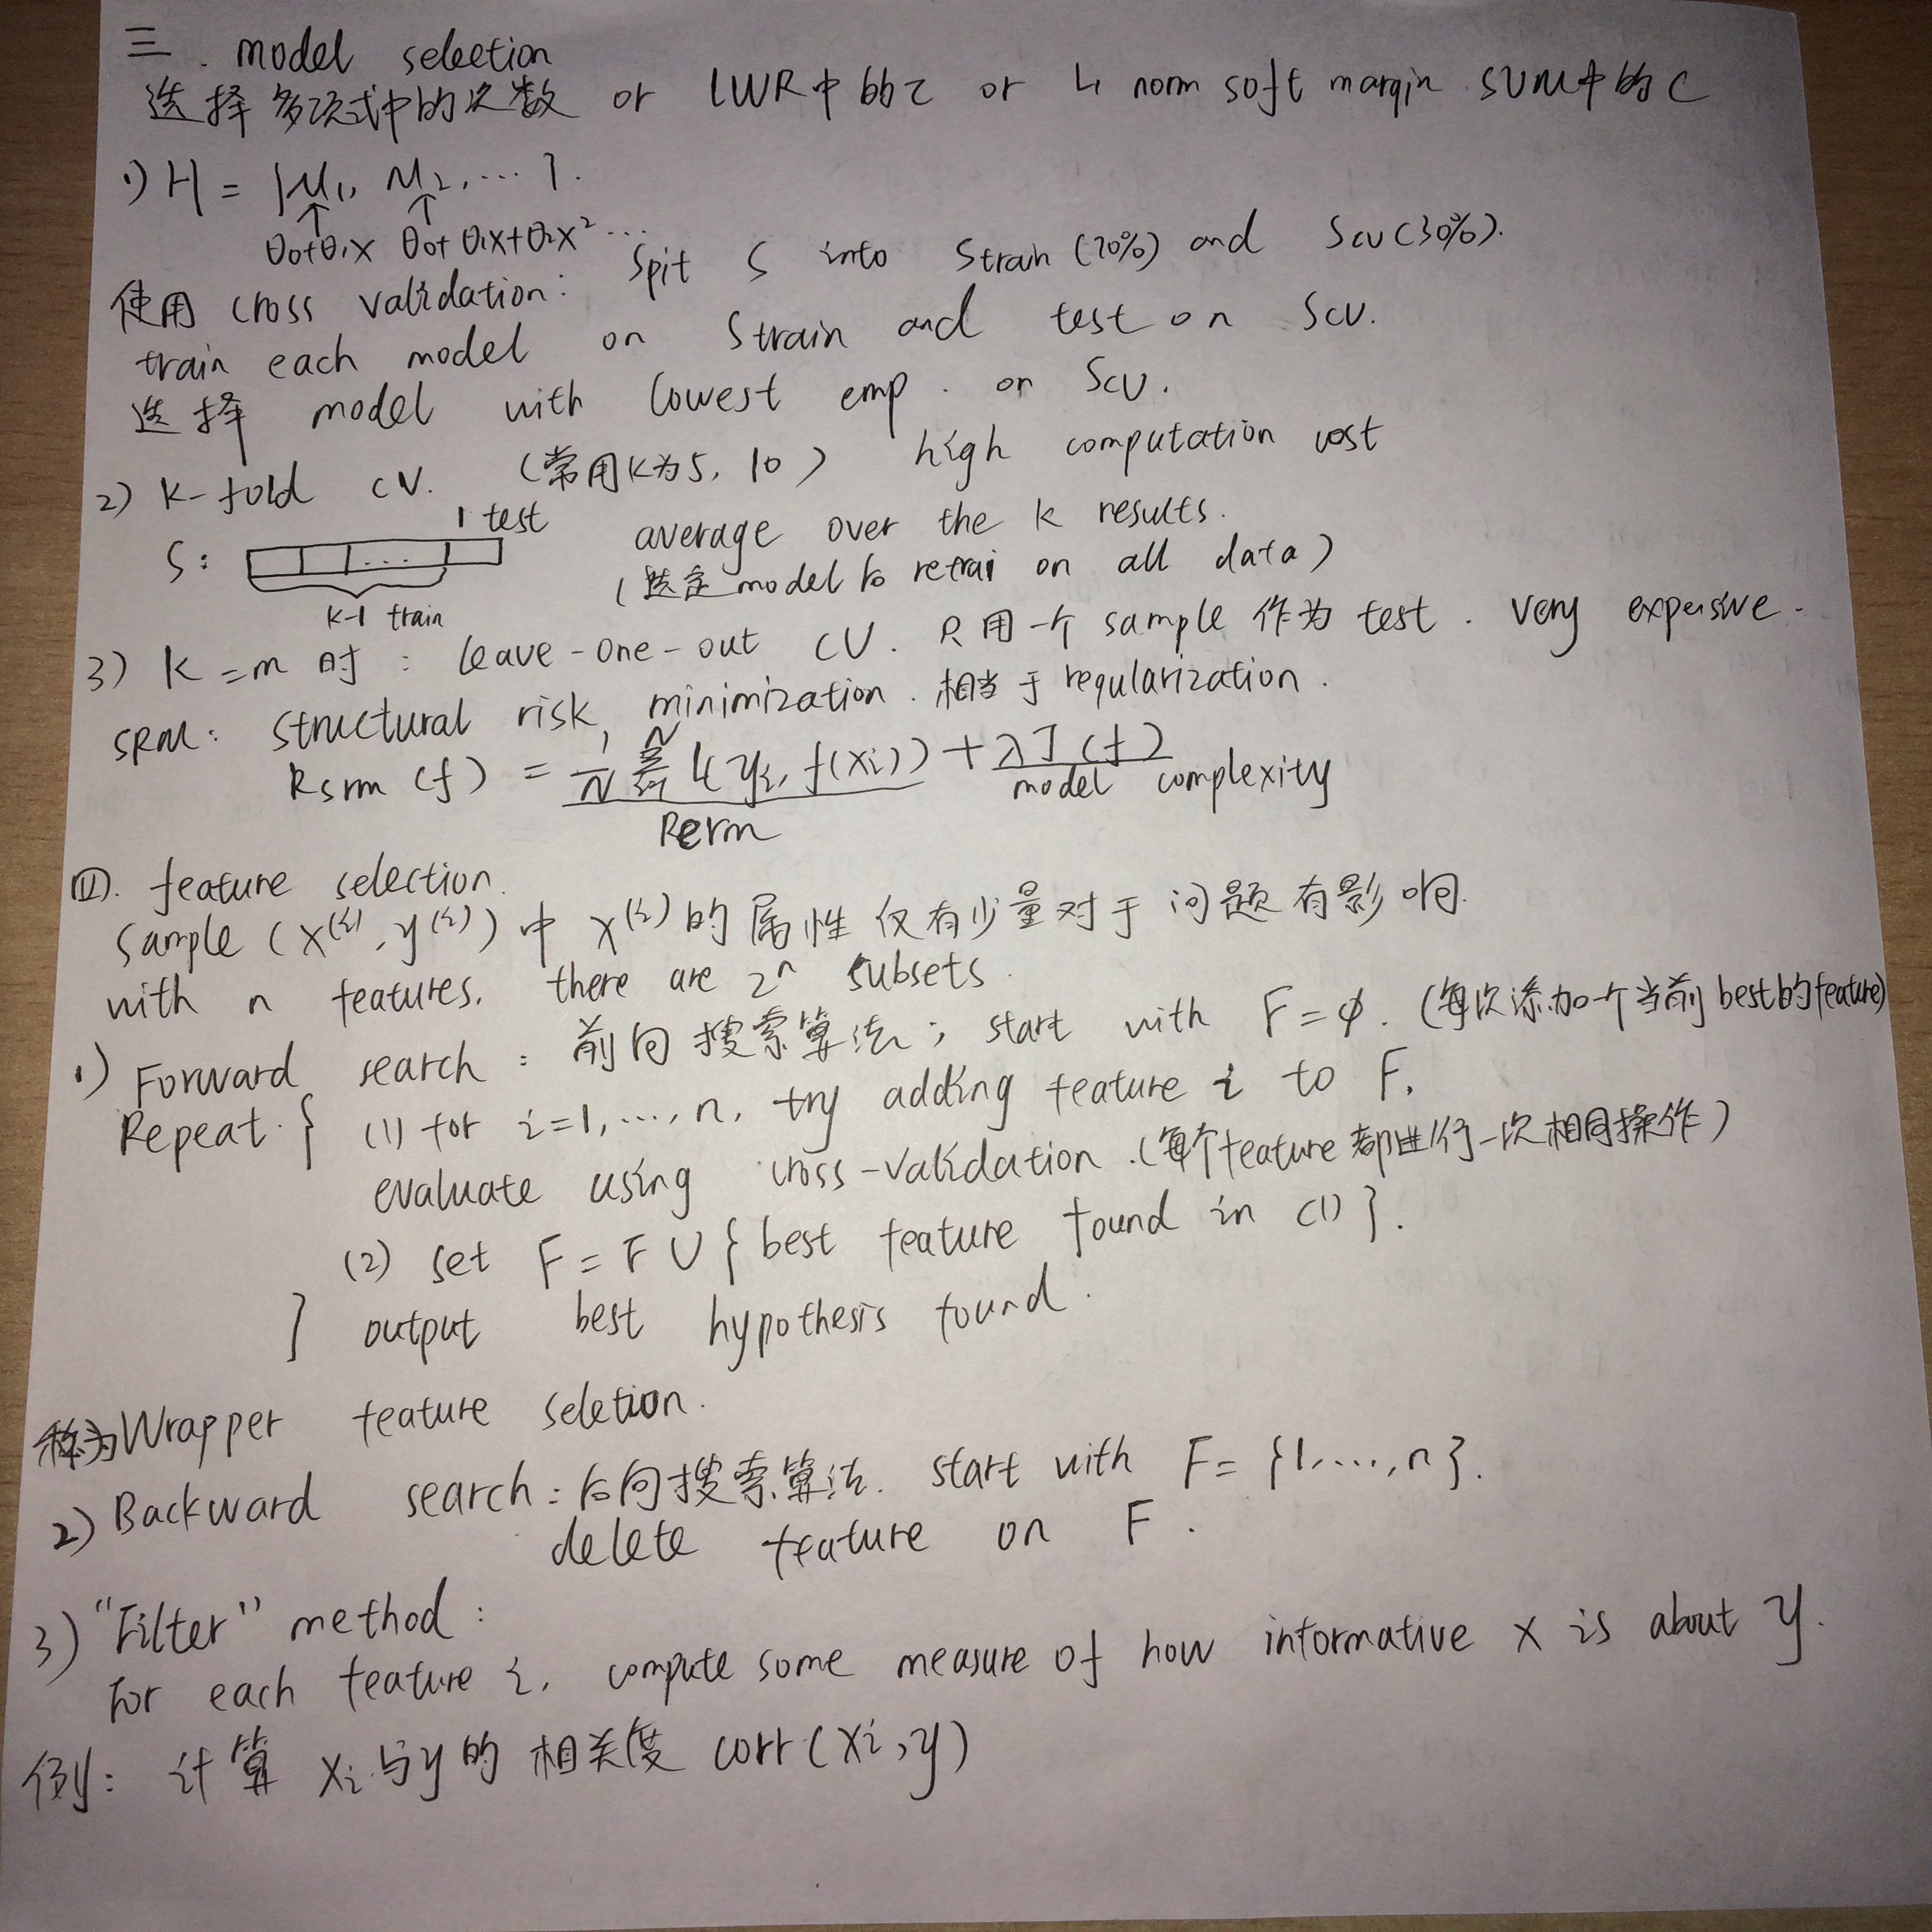 三. model selection
选择多项式中的次数 or LWR中的τ or L1 norm soft margin SVM中的C
1) H = {M1, M2, ...}.
↑ ↑
θ0+θ1x θ0+θ1x+θ2x² ...
使用 cross validation: Spit S into Strain (70%) and Scv (30%).
train each model on Strain and test on Scv.
选择 model with lowest emp. on Scv.
2) K-fold CV. (常用K为5, 10) high computation cost
1 test
S: ... average over the k results.
(选定model后 retrai on all data)
k-1 train
3) K=m 时: leave-one-out CV. 只用一个 sample 作为 test. very expensive.
SRM: structural risk minimization. 相当于 regularization.
Rsrm(f) = 1/N Σ_{i=1}^{N} L(yi, f(xi)) + λJ(f)
Rerm model complexity
四. feature selection.
Sample (x⁽ⁱ⁾, y⁽ⁱ⁾) 中 x⁽ⁱ⁾ 的属性仅有少量对于问题有影响.
with n features, there are 2ⁿ subsets.
1) Forward search: 前向搜索算法; start with F=φ. (每次添加一个当前best的feature)
Repeat { (1) for i=1, ..., n, try adding feature i to F,
evaluate using cross-validation. (每个feature都进行一次相同操作)
(2) set F = F ∪ { best feature found in (1) }.
} output best hypothesis found.
称为Wrapper feature seletion.
2) Backward search: 后向搜索算法. start with F = {1, ..., n}.
delete feature on F.
3) "Filter" method:
For each feature i, compute some measure of how informative x is about y.
例: 计算 xi 与y的相关度 corr(xi, y)